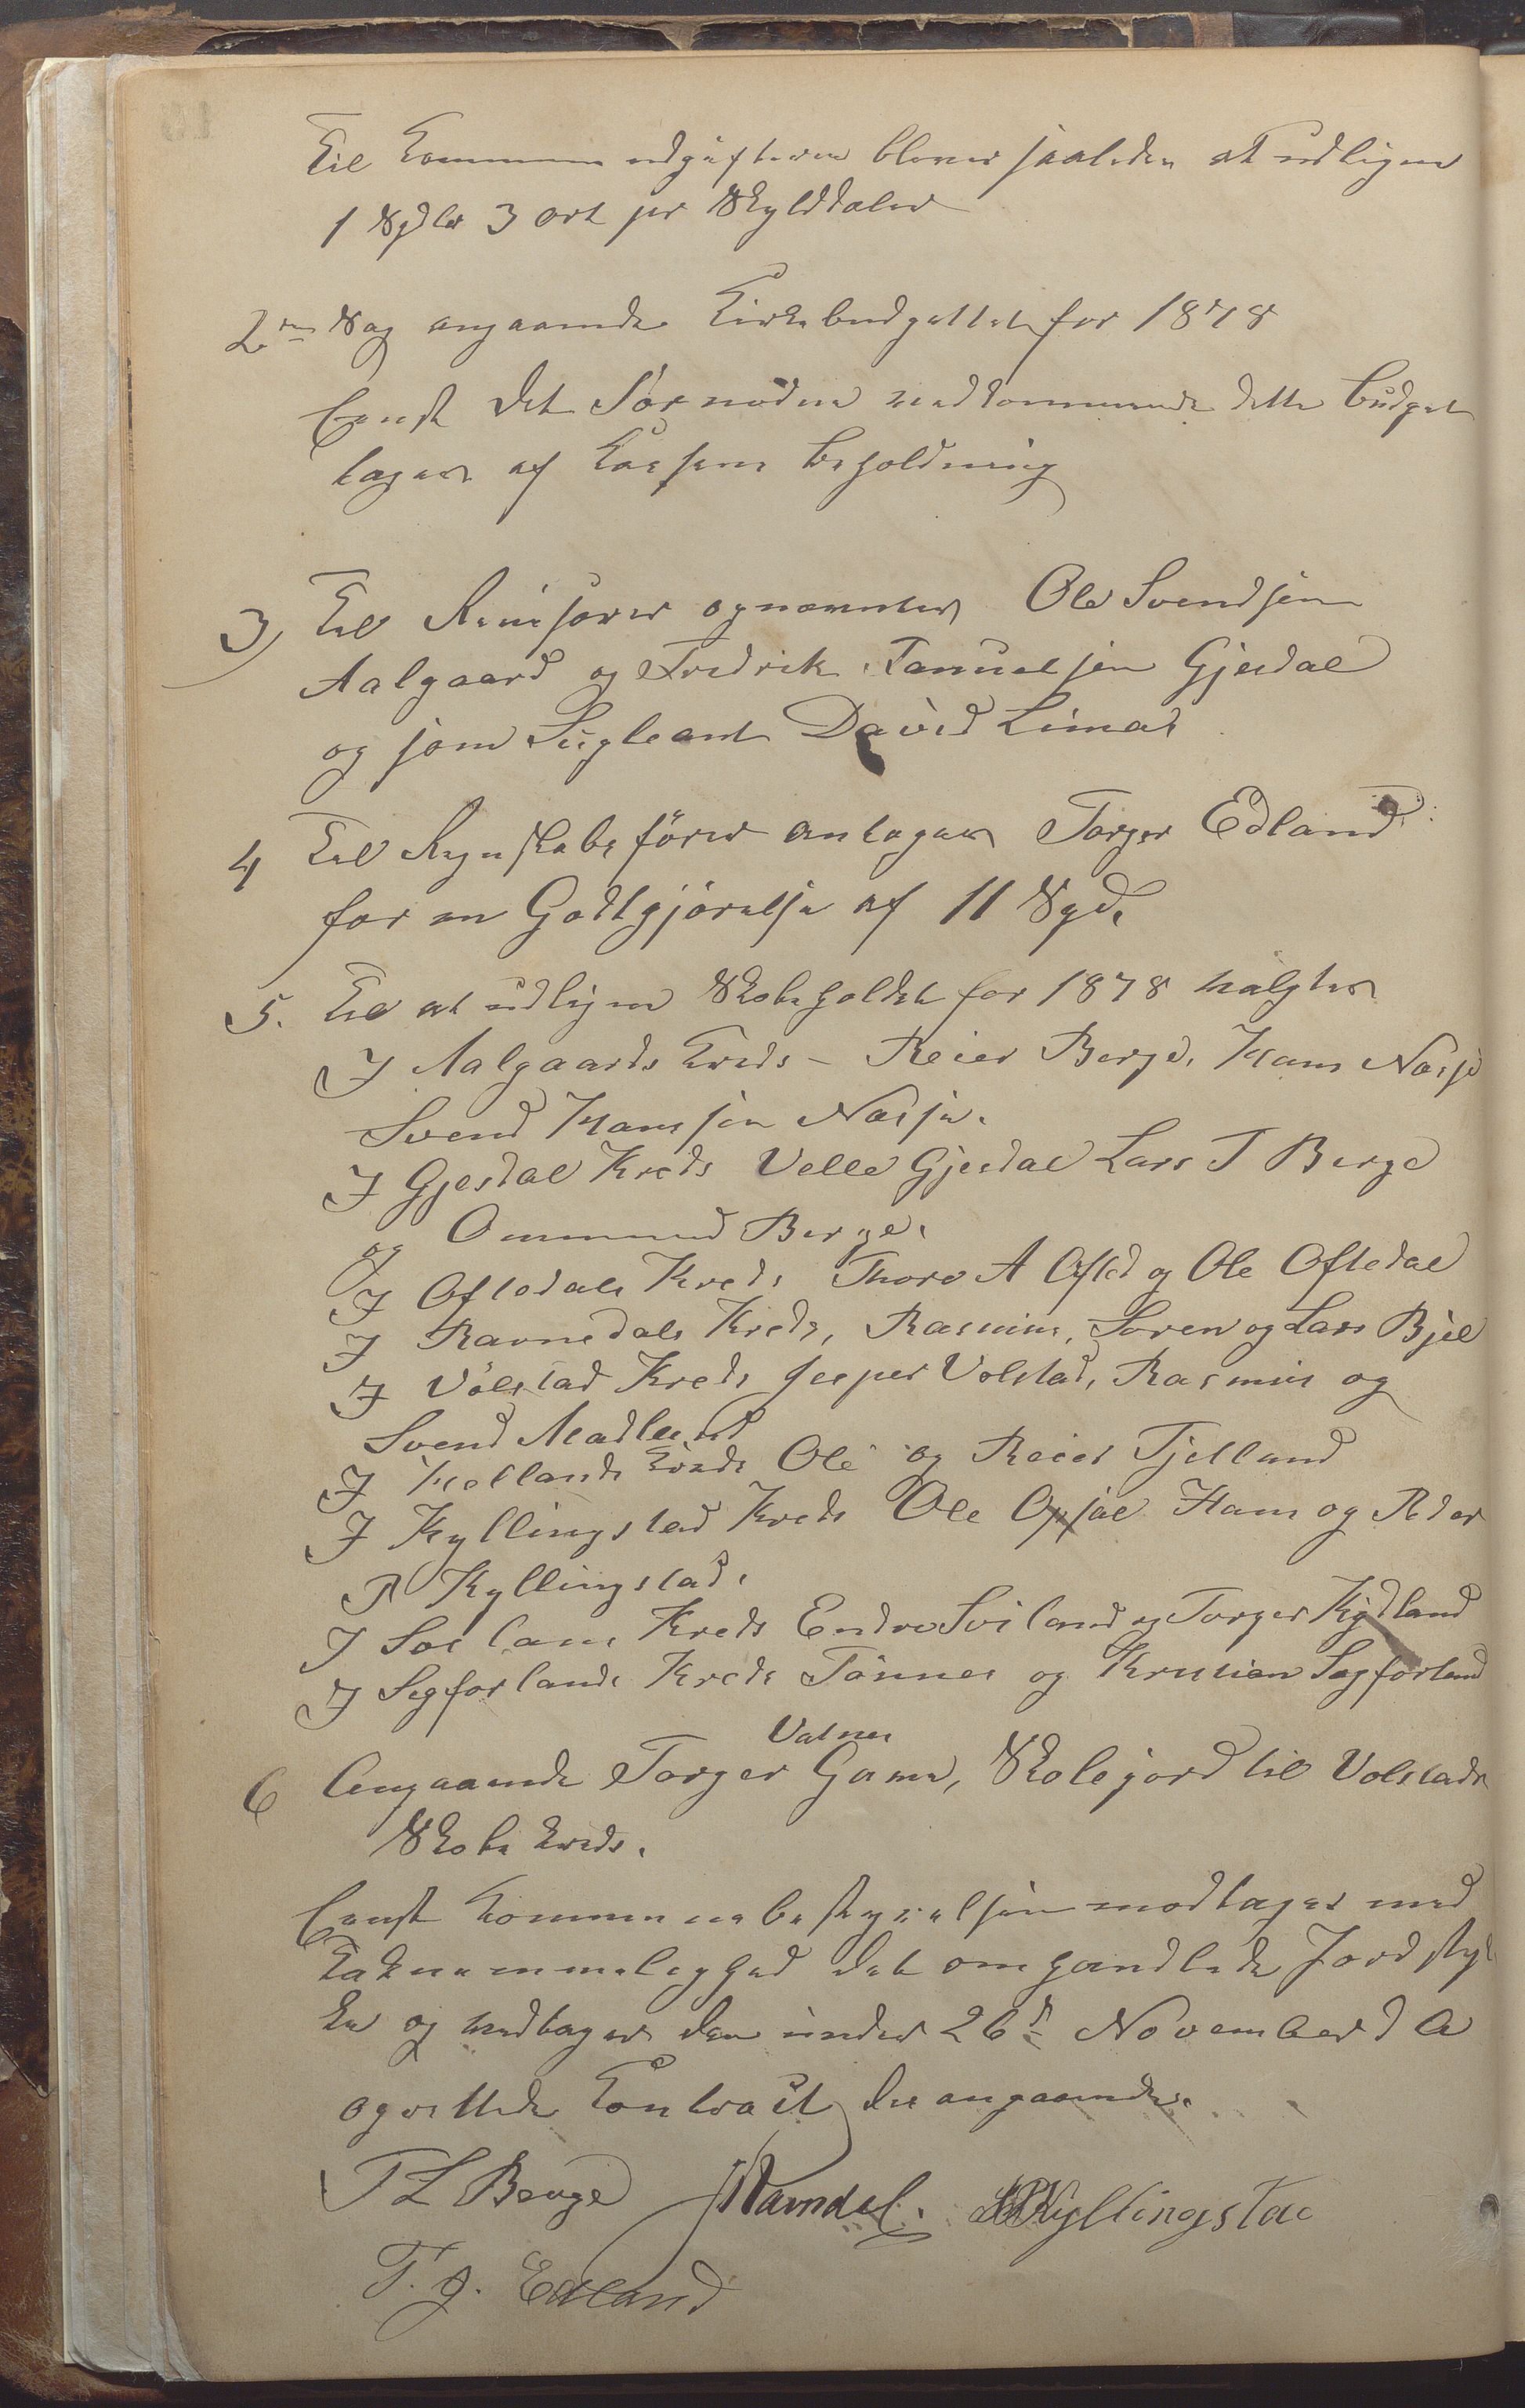 Til Kommuneudgifterne bliver saaledes at udligne
1 Spdlr 3 ort pr Skylddaler
2en Sag angaaende Kirkebudgettet for 1878
Besl. det Fornødne vedkommende dette Budget
tages af Kassens Beholdning
3) Til Revisorer opnævntes Ole Svendsen
Aalgaard og Fredrik Samuelsen Gjesdal
og som Supleant David Limas
4 Til Regnskabsfører antages Torger Edland
for en Godtgjørelse af 11 Spd.
5. Til at udligne Skoleholdet for 1878 valgtes
I Aalgaards Kreds - Reier Berge, Hans Næsse
Svend Hansen Næsse.
I Gjesdal Kreds Velle Gjesdal Lars T Berge
og Ommund Berge.
I Oftedals Kreds Thore A Ofted og Ole Oftedal
I Ravnedals Kreds, Rasmus, Soren og Lars Bjel
I Vølstad Kreds Jesper Volstad, Rasmus og
Svend Madland
I Kreds Ole og Reier Tjelland
I Kyllingstad Kreds Ole Opsal Hans og Peder
P Kyllingstad.
I Kreds Endre Sviland og Torger Kydland
I Segforlands Kreds Tønnes og Kristian Segforland
Vatnes
6 Angaaende Torger Gave, Skolejord til Volstads
Skole Kreds.
Besl. Kommunebestyrelsen modtager med
Taknemmelighed det omhandlede Jordstyk
ke og vedtager den under 26de November d A
oprettede Kontrakt desangaaende.
T L Berge Ravndal. Kyllingstad
T. J. Edland